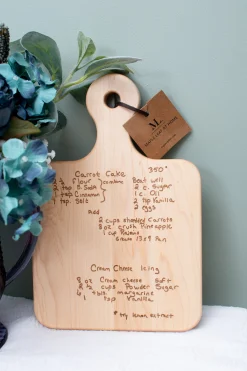 ML
Carrot Cake 350°
2 ½ flour
2 tsp B Soda
1 tsp Cinnamon
1 tsp Salt
Combine
Beat well
2 c. Sugar
1 c. Oil
2 tsp Vanilla
2 eggs
Add
2 cups shredded Carrots
8 oz crush Pineapple
1 cup Raisins
Grease 13x9 Pan
Cream Cheese Icing
8 oz Cream cheese Soft
2 ½ cups Powder Sugar
6 tbls margarine
1 tsp Vanilla
* try lemon extract